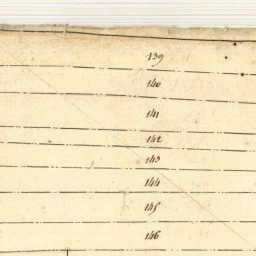 139
140
141
142
143
144
145
146